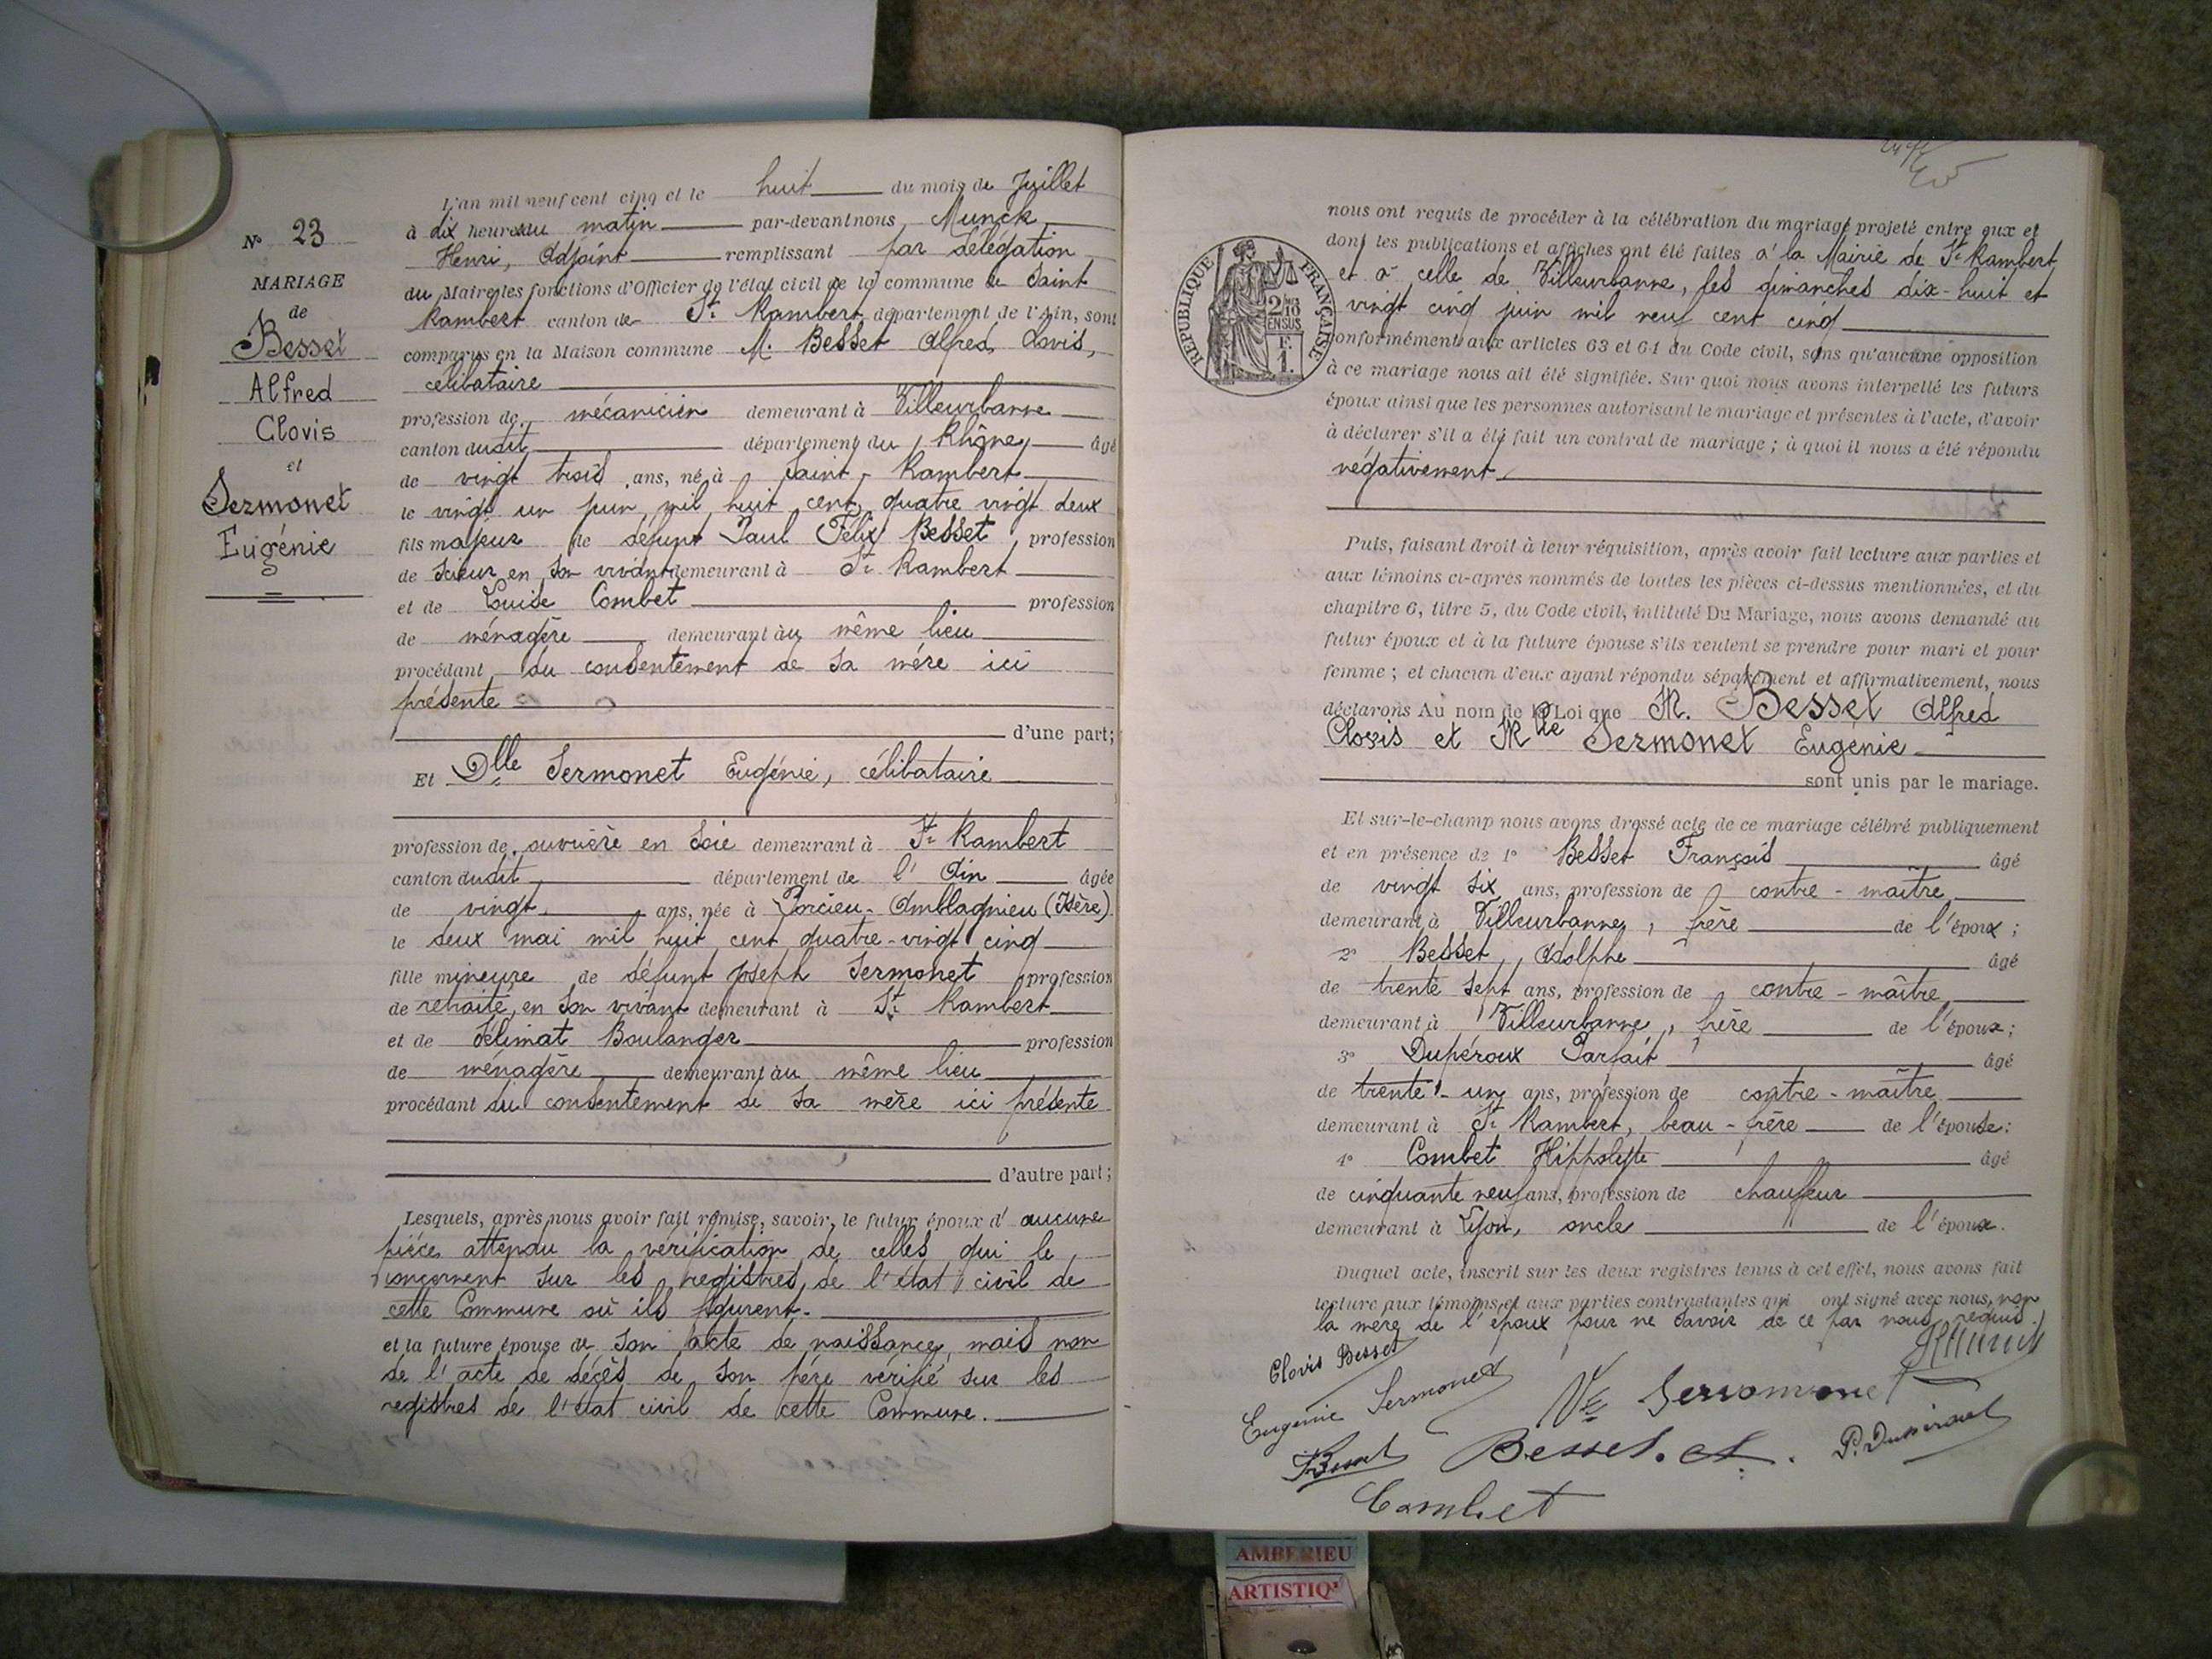 N° 23
MARIAGE
de
Besset
Alfred
Clovis
et
Sermonet
Eugénie
L'an mil neuf cent cinq et le huit du mois de Juillet
à dix heures du matin par-devant nous Munck
Henri, Adjoint remplissant par délégation
du Maire les fonctions d'Officier de l'état civil de la commune de Saint
Rambert canton de St Rambert, département de l'Ain, sont
comparus en la Maison commune M. Besset Alfred, Clovis,
célibataire
profession de mécanicien demeurant à Villeurbanne
canton dudit département du Rhône, âgé
de vingt trois ans, né à Saint-Rambert
le vingt un juin mil huit cent quatre vingt deux
fils majeur de défunt Paul Félix Besset, profession
de scieur, en son vivant demeurant à St Rambert
et de Louise Combet profession
de ménagère demeurant au même lieu
procédant du consentement de sa mère ici
présente
d'une part;
Et Dlle Sermonet Eugénie, célibataire
profession de ouvrière en soie demeurant à St Rambert
canton dudit département de l'Ain âgée
de vingt ans, née à Porcieu-Amblagnieu (Isère)
le deux mai mil huit cent quatre-vingt cinq
fille mineure de défunt Joseph Sermonet profession
de retraité, en son vivant demeurant à St Rambert
et de Sélimat Boulanger profession
de ménagère demeurant au même lieu
procédant du consentement de sa mère ici présente
d'autre part;
Lesquels, après nous avoir fait remise, savoir, le futur époux d'aucune
pièce attendu la vérification de celles qui le
concernent sur les registres de l'état civil de
cette Commune où ils figurent.
et la future épouse de son acte de naissance, mais non
de l'acte de décès de son père vérifié sur les
registres de l'état civil de cette Commune.
RÉPUBLIQUE FRANÇAISE
2/10 EN SUS
F. 1.
nous ont requis de procéder à la célébration du mariage projeté entre eux et
dont les publications et affiches ont été faites à la Mairie de St Rambert
et à celle de Villeurbanne, les dimanches dix-huit et
vingt cinq juin mil neuf cent cinq
conformément aux articles 63 et 64 du Code civil, sans qu'aucune opposition
à ce mariage nous ait été signifiée. Sur quoi nous avons interpellé les futurs
époux ainsi que les personnes autorisant le mariage et présentes à l'acte, d'avoir
à déclarer s'il a été fait un contrat de mariage; à quoi il nous a été répondu
négativement.
Puis, faisant droit à leur réquisition, après avoir fait lecture aux parties et
aux témoins ci-après nommés de toutes les pièces ci-dessus mentionnées, et du
chapitre 6, titre 5, du Code civil, intitulé Du Mariage, nous avons demandé au
futur époux et à la future épouse s'ils veulent se prendre pour mari et pour
femme; et chacun d'eux ayant répondu séparément et affirmativement, nous
déclarons Au nom de la Loi que M. Besset Alfred
Clovis et Mlle Sermonet Eugénie
sont unis par le mariage.
Et sur-le-champ nous avons dressé acte de ce mariage célébré publiquement
et en présence de 1° Besset François âgé
de vingt six ans, profession de contre-maître
demeurant à Villeurbanne, frère de l'époux;
2° Besset, Adolphe âgé
de trente sept ans, profession de contre-maître
demeurant à Villeurbanne, frère de l'époux;
3° Dupéroux Parfait âgé
de trente-un ans, profession de contre-maître
demeurant à St Rambert, beau-frère de l'épouse;
4° Combet Hippolyte âgé
de cinquante neuf ans, profession de chauffeur
demeurant à Lyon, oncle de l'époux.
Duquel acte, inscrit sur les deux registres tenus à cet effet, nous avons fait
lecture aux témoins et aux parties contractantes qui ont signé avec nous, non
la mère de l'époux pour ne savoir de ce par nous requis.
Clovis Besset
Eugénie Sermonet
Vve Sermonet
Besset. A.
Combet
AMBERIEU
ARTISTIQ'